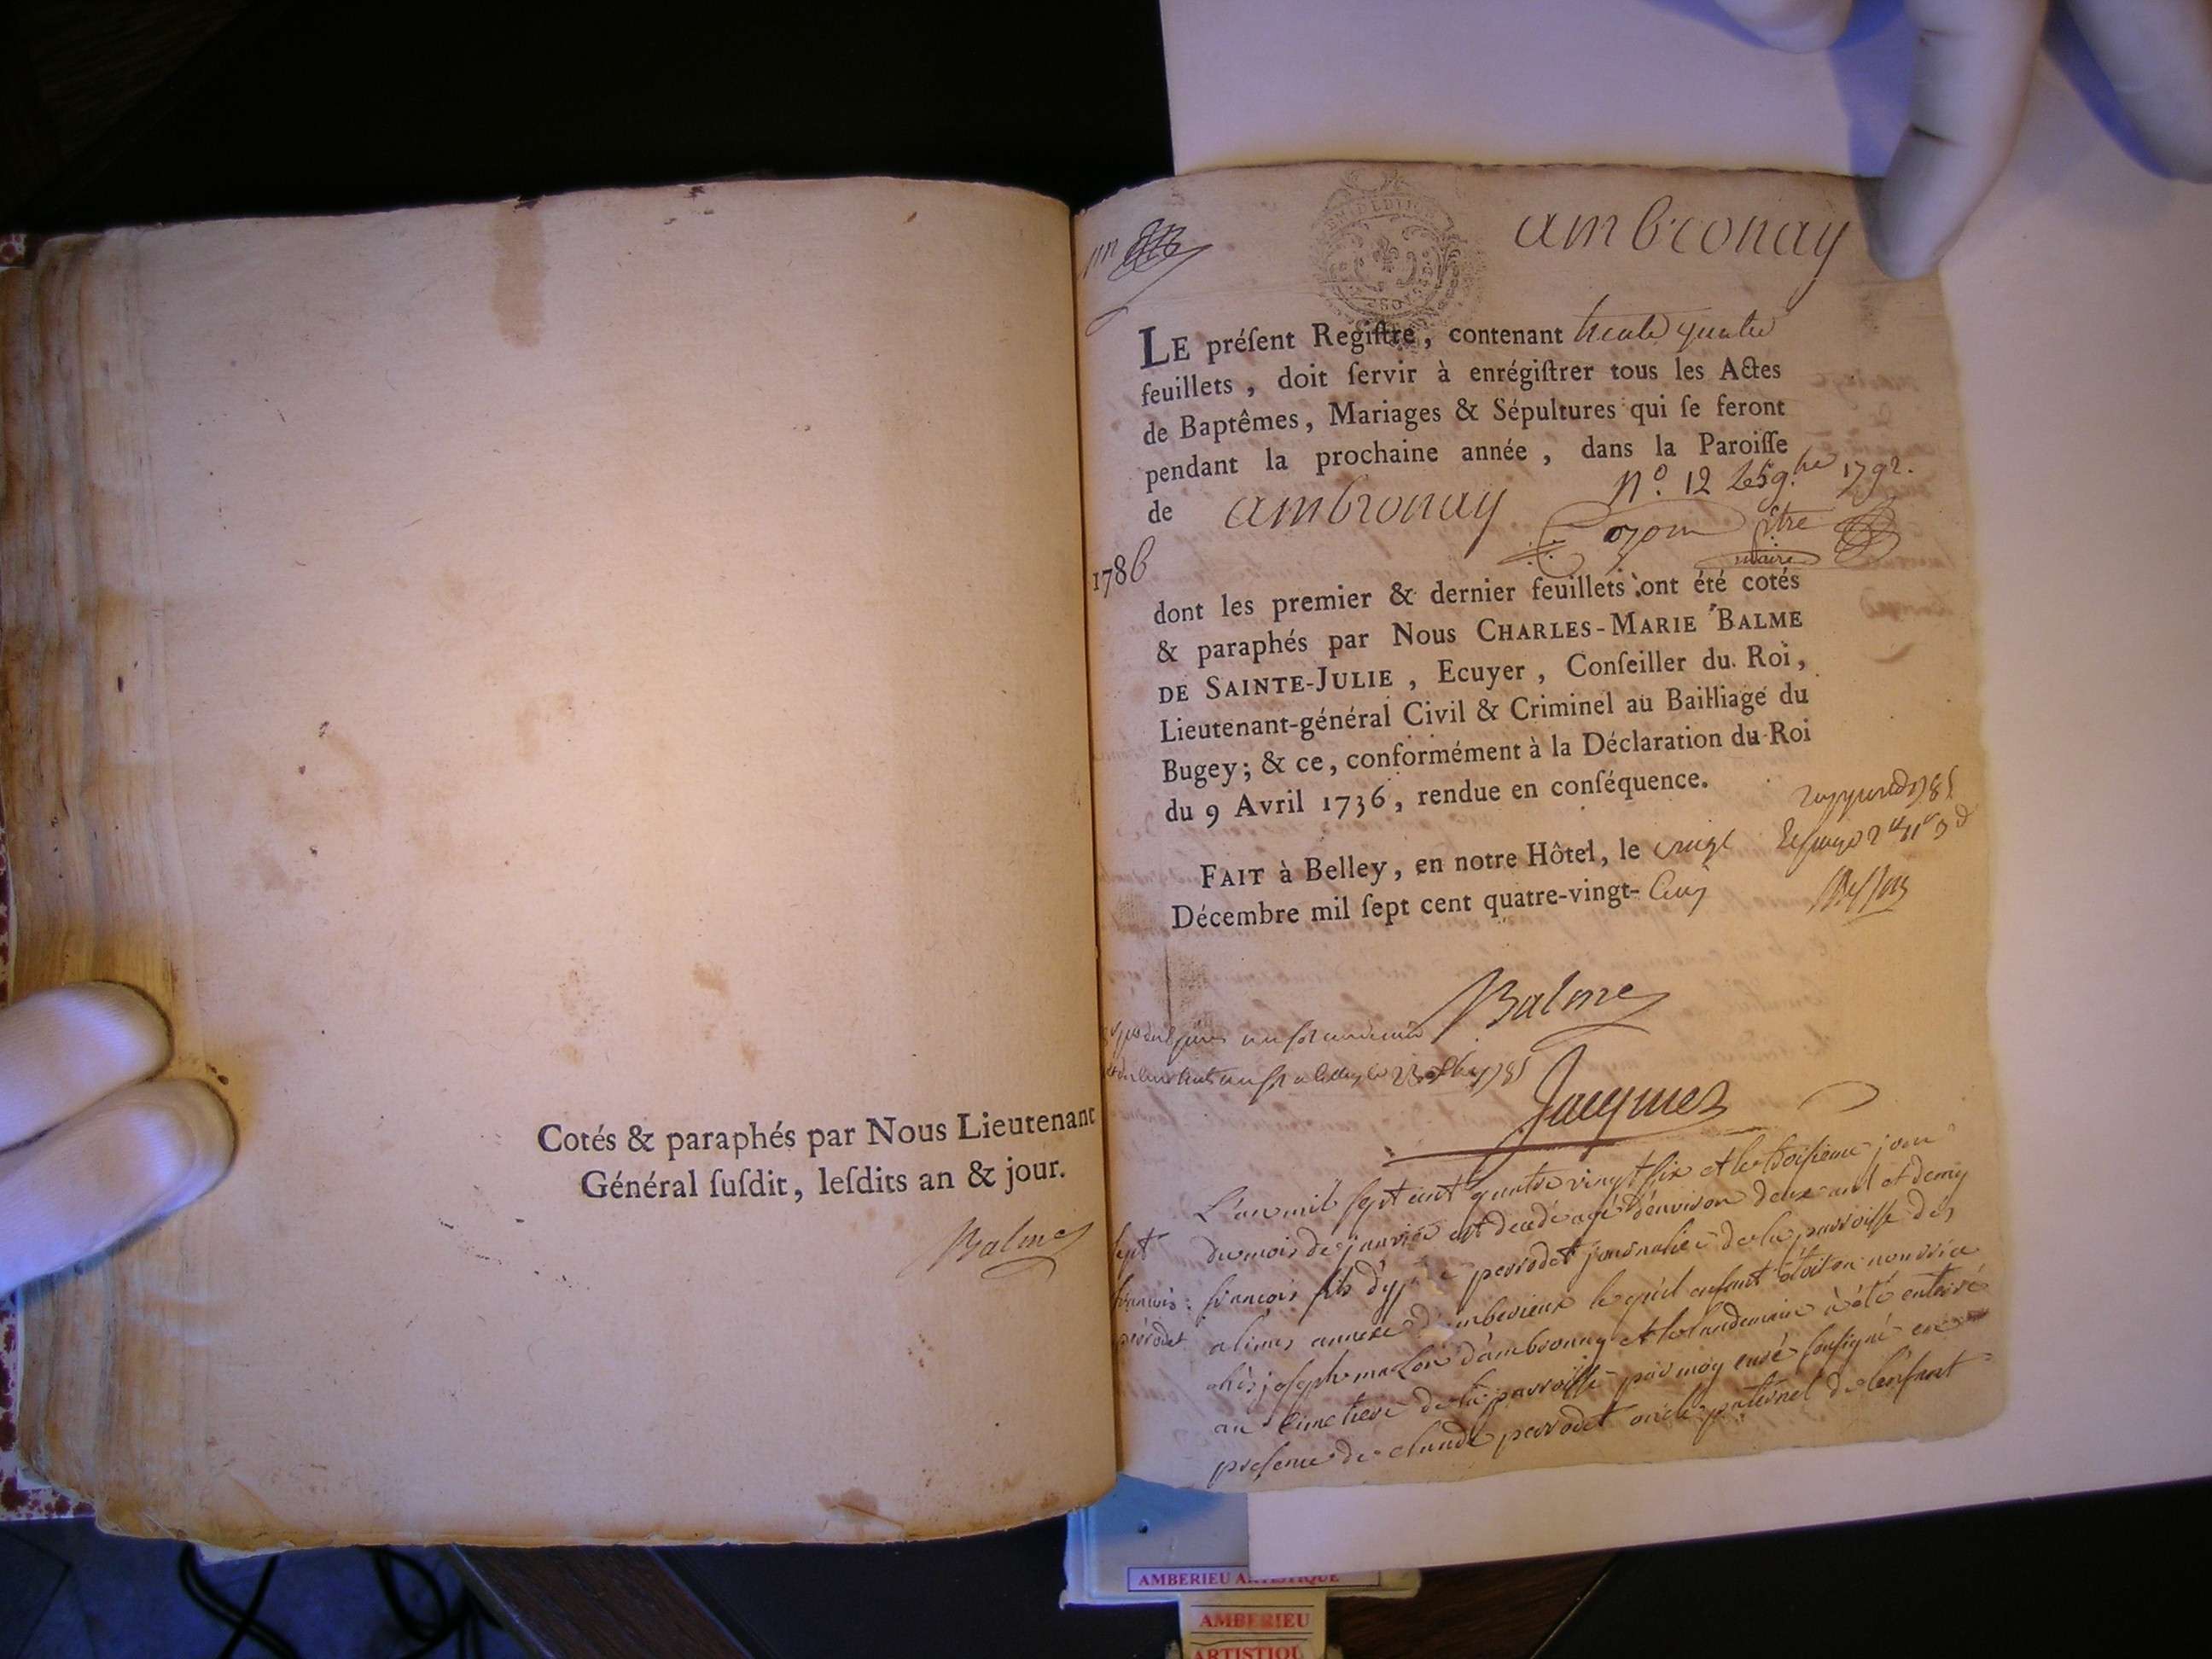 Cotés & paraphés par Nous Lieutenant
Général ſuſdit, leſdits an & jour.
Balme
ambronay
LE préſent Regiſtre, contenant trente quatre
feuillets, doit ſervir à enrégiſtrer tous les Actes
de Baptêmes, Mariages & Sépultures qui ſe feront
pendant la prochaine année, dans la Paroiſſe
de ambronay
N.º 12 1792.
maire
1786
dont les premier & dernier feuillets ont été cotés
& paraphés par Nous CHARLES-MARIE BALME
DE SAINTE-JULIE, Ecuyer, Conſeiller du Roi,
Lieutenant-général Civil & Criminel au Bailliage du
Bugey; & ce, conformément à la Déclaration du Roi
du 9 Avril 1736, rendue en conſéquence.
FAIT à Belley, en notre Hôtel, le vingt
Décembre mil ſept cent quatre-vingt-Cinq
Balme
Jacquez
L'an mil sept cent quatre vingt six et le troisieme jour
du mois de janvier est decedé agé d'environ deux ans et demy
françois fils perrodet journalier de la parroisse des
alimes annexe d'amberieux le quel enfant étoit en nourrice
chés joseph d'ambronay et le landemain à été enterré
au cimetiere de la parroisse par moy curé soussigné en
presence de claude perrodet oncle paternel de l'enfant
sept
françois
perrodet
AMBERIEU ARTISTIQUE
AMBERIEU
ARTISTIQU